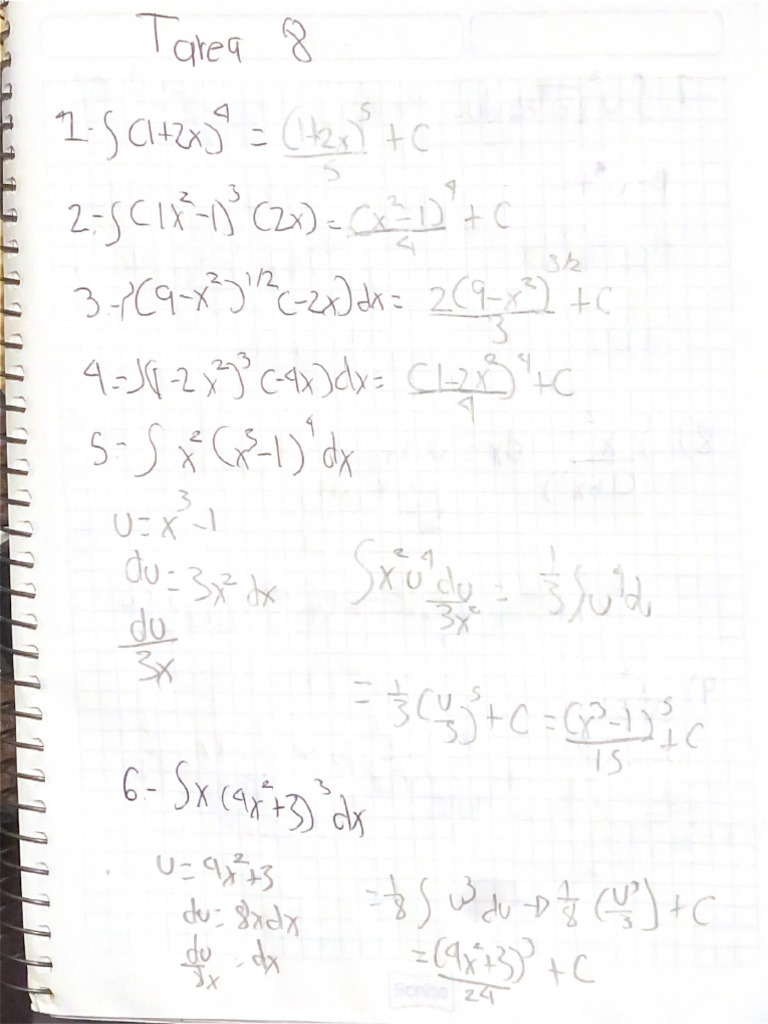 Tarea 8
1.- ∫ (1+2x)^4 = (1+2x)^5/5 + C
2.- ∫ (1x^2-1)^3 (2x) = (x^2-1)^4/4 + C
3.- ∫(9-x^2)^1/2 (-2x)dx = 2(9-x^2)^3/2/3 + C
4.- ∫(1-2x^2)^3 (-4x)dx = (1-2x^2)^4/4 + C
5.- ∫ x^2 (x^3-1)^4 dx
u = x^3 - 1
du = 3x^2 dx
∫ x^2 u^4 du/3x^2 = 1/3 ∫ u^4 d
du/3x
= 1/3 (u/5)^5 + C = (x^3-1)^5/15 + C
6.- ∫ x (4x^2+3)^3 dx
u = 4x^2+3
du = 8x dx
= 1/8 ∫ u^3 du → 1/8 (u^3/3) + C
du/8x = dx
= (4x^2+3)^3/24 + C
Scribe